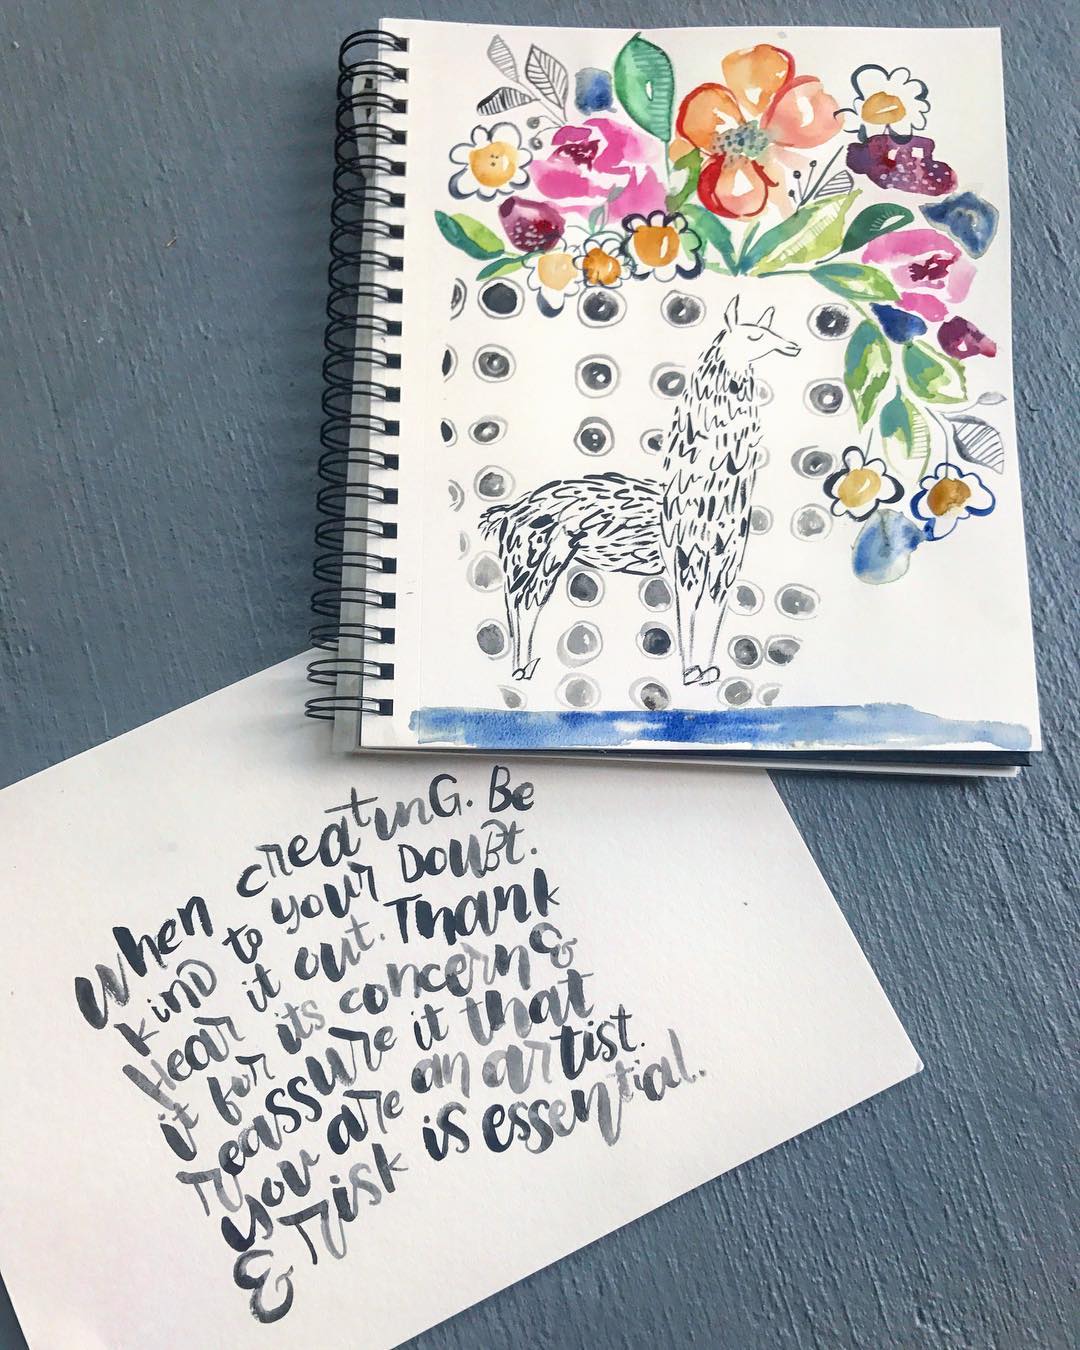 When creatinG. Be
kinD to your DouBt.
Hear it out. Thank
it for its concern &
reassure it that
you are an artist.
& risk is essential.